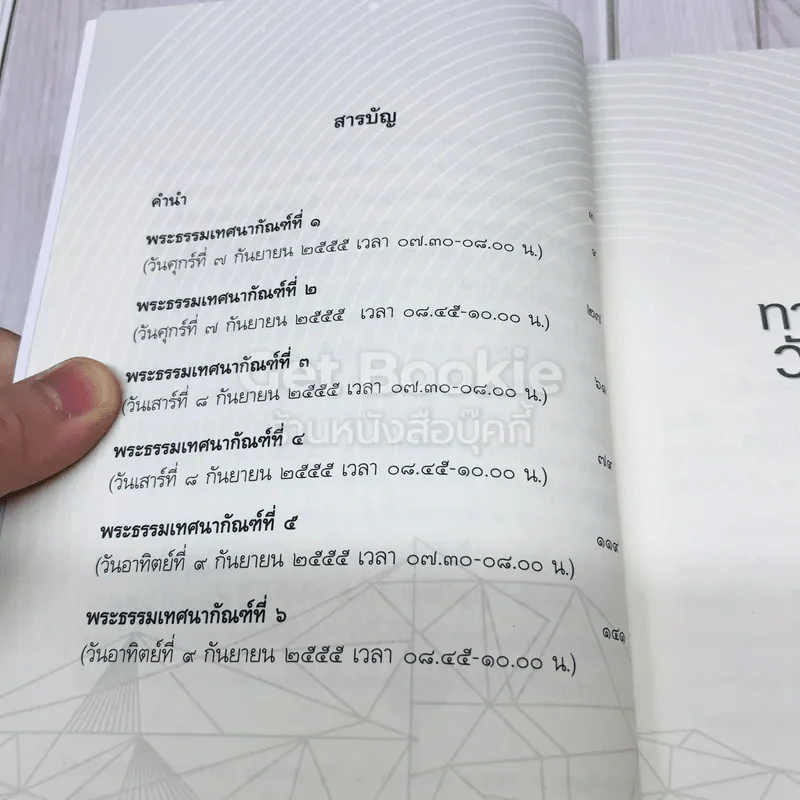 สารบัญ
คำนำ ๓
พระธรรมเทศนากัณฑ์ที่ ๑
(วันศุกร์ที่ ๗ กันยายน ๒๕๕๕ เวลา ๐๗.๓๐-๐๘.๐๐ น.)
พระธรรมเทศนากัณฑ์ที่ ๒ ๒๗
(วันศุกร์ที่ ๗ กันยายน ๒๕๕๕ เวลา ๐๘.๔๕-๑๐.๐๐ น.)
พระธรรมเทศนากัณฑ์ที่ ๓ ๖๑
(วันเสาร์ที่ ๘ กันยายน ๒๕๕๕ เวลา ๐๗.๓๐-๐๘.๐๐ น.)
พระธรรมเทศนากัณฑ์ที่ ๔
(วันเสาร์ที่ ๘ กันยายน ๒๕๕๕ เวลา ๐๘.๔๕-๑๐.๐๐ น.)
พระธรรมเทศนากัณฑ์ที่ ๕ ๑๑๙
(วันอาทิตย์ที่ ๙ กันยายน ๒๕๕๕ เวลา ๐๗.๓๐-๐๘.๐๐ น.)
พระธรรมเทศนากัณฑ์ที่ ๖ ๑๔๑
(วันอาทิตย์ที่ ๙ กันยายน ๒๕๕๕ เวลา ๐๘.๔๕-๑๐.๐๐ น.)
Get Bookie
ร้านหนังสือบุ๊คกี้